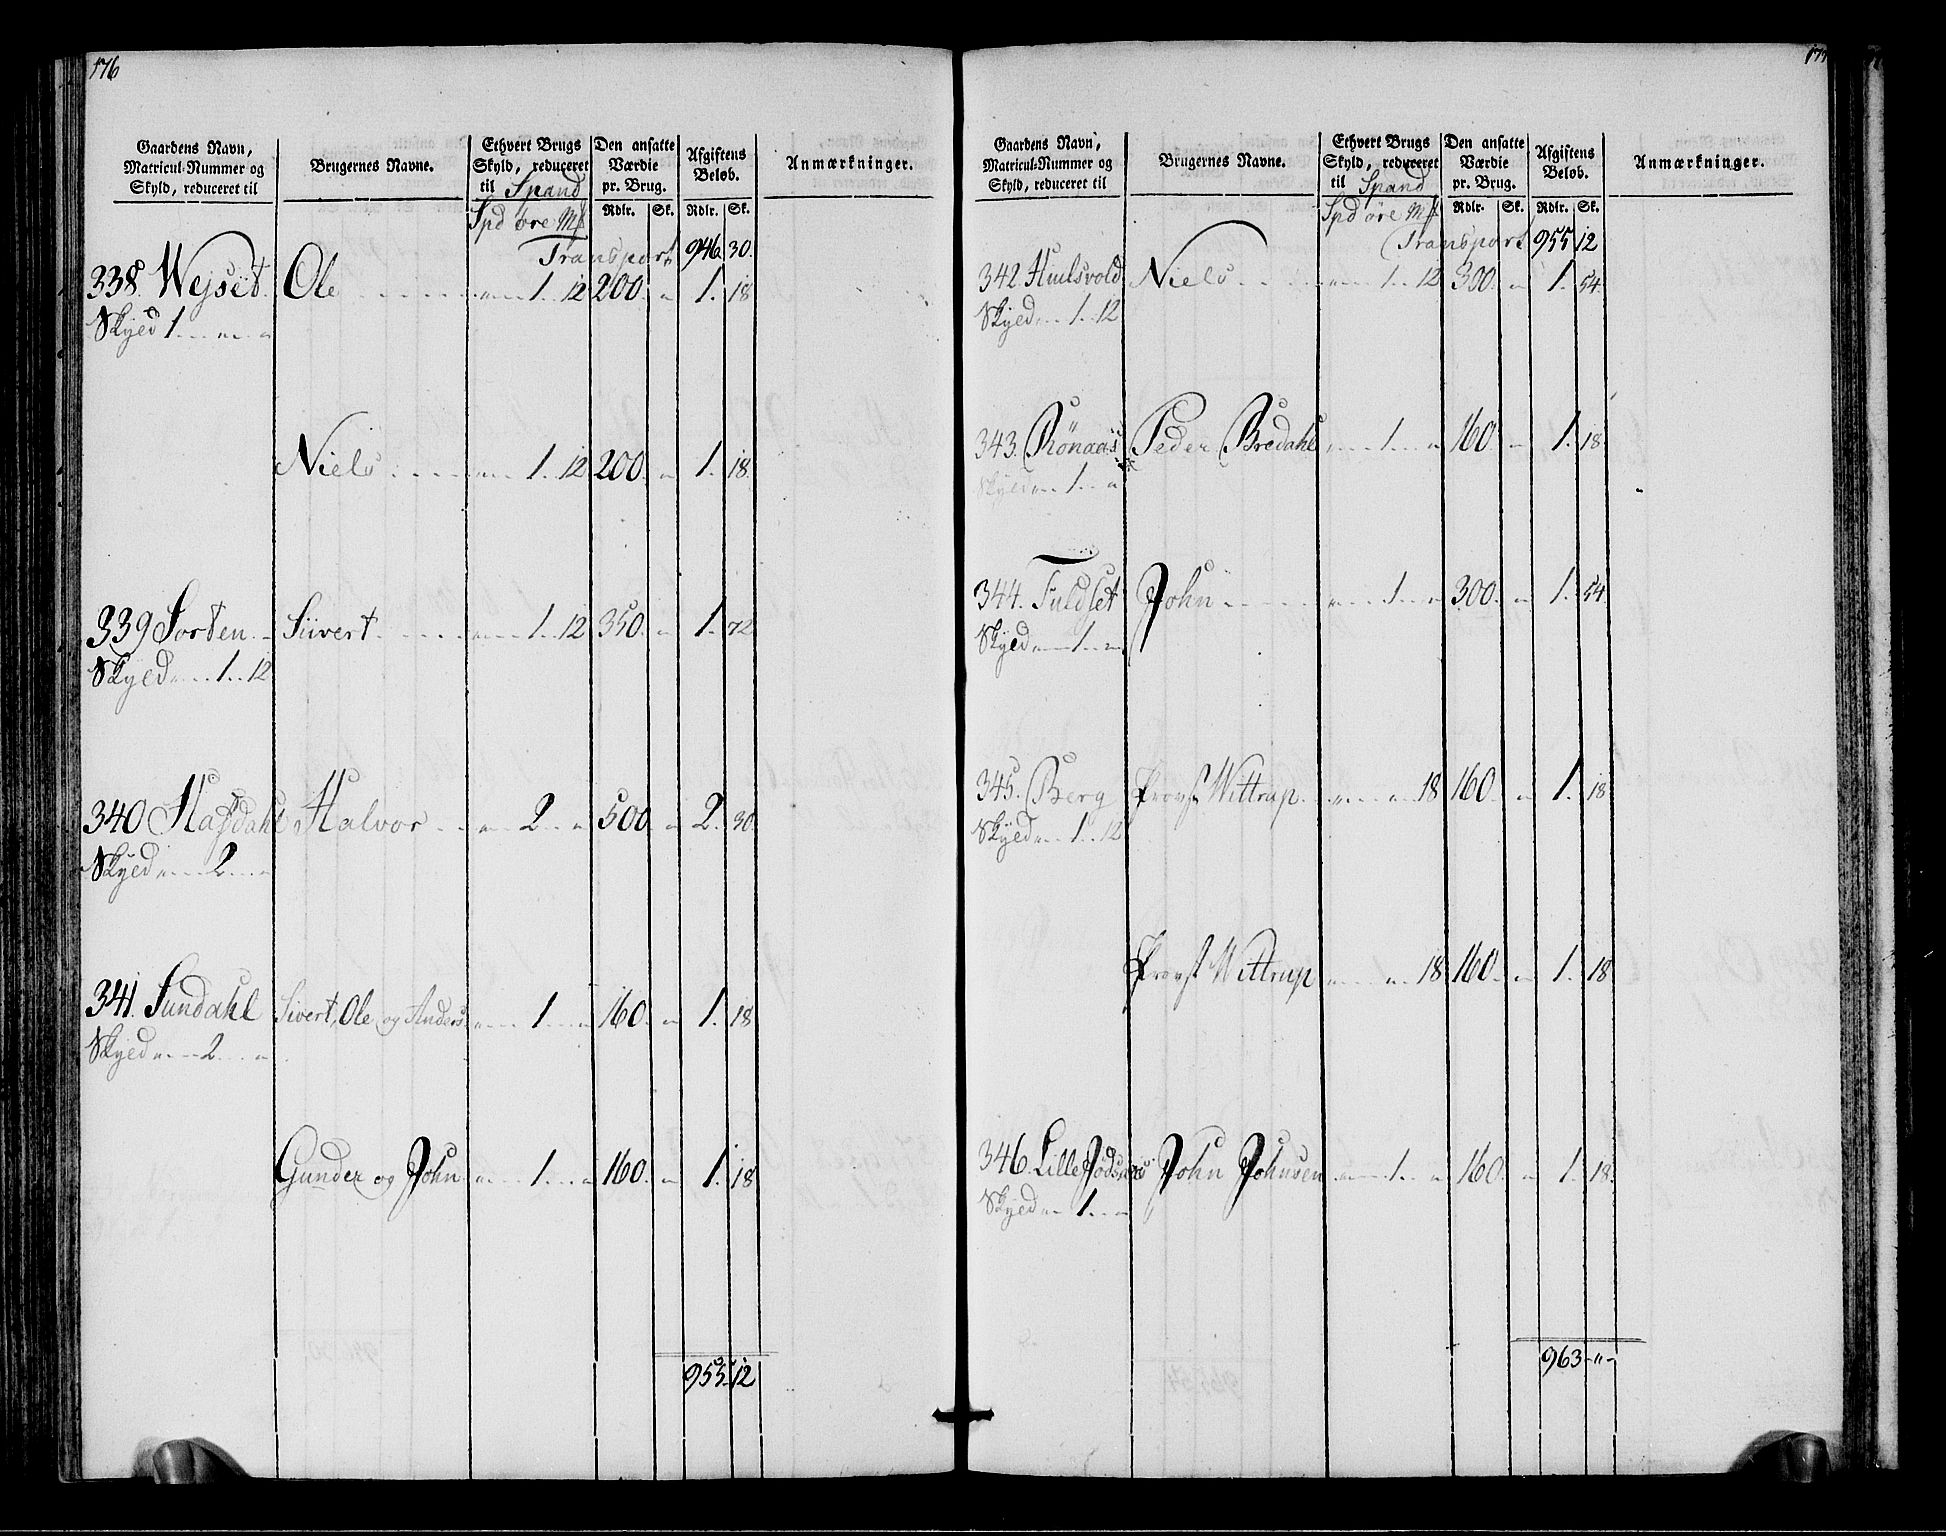 176
Gaardens Navn, Matricul-Nummer og Skyld, reduceret til
Brugernes Navne.
Ethvert Brugs Skyld, reduceret til Spand
Den ansatte Værdie pr. Brug.
Afgiftens Beløb.
Anmærkninger.
Spd øre Mk
Rdlr. Sk. Rdlr. Sk.
Transport 946. 30.
338. Wejset Ole 1. 12 200. 1. 18
Skyld 1.
Niels 1. 12 200. 1. 18.
339 Sorten Siivert 1. 12 350. 1. 72
Skyld 1. 12
340 Halvor 2. 500. 2. 30.
Skyld 2.
341. Sundahl Sivert, Ole og Anders 1. 160. 1. 18
Skyld 2.
Gunder og John 1. 160. 1. 18
955. 12
177
Gaardens Navn, Matricul-Nummer og Skyld, reduceret til
Brugernes Navne.
Ethvert Brugs Skyld, reduceret til Spand
Den ansatte Værdie pr. Brug.
Afgiftens Beløb.
Anmærkninger.
Spd øre Mk
Rdlr. Sk. Rdlr. Sk.
Transport 955 12
342. Huulsvold Niels 1. 12 300. 1. 54.
Skyld 1. 12
343. Rönaas Peder Bredahl 1. 160. 1. 18.
Skyld 1.
344. Fuldset John 1. 300. 1. 54.
Skyld 1.
345. Berg Provst Wittrup 18 160. 1. 18
Skyld 1. 12
Provst Wittrup 18 160. 1. 18
346. Lille John Johnsen 1. 160. 1. 18.
Skyld 1.
963 - " -